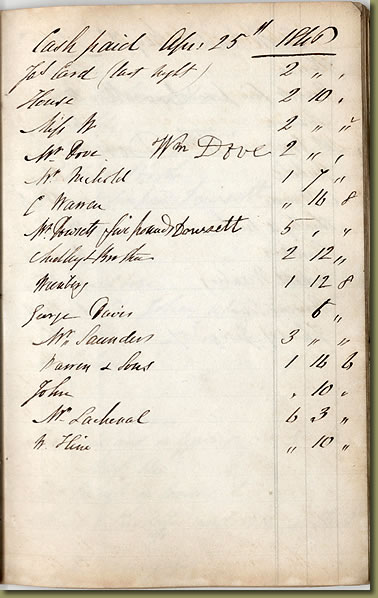 Cash paid Apr: 25th 1846
Jas Card (last night) 2 „ „
House 2 10 „
Miss W 2 „ „
Mr Dove. Wm Dove 2 „ „
Mr Nickold 1 7 „
C Warren „ 16 8
Mr Dowsett five pounds Dowsett 5 „ „
2 12 „
1 12 8
George Davis 6 „
Mr Saunders 3 „ „
Warren & Sons 1 16 6
John „ 10 „
Mr Lachenal 6 3 „
W. Hine „ 10 „